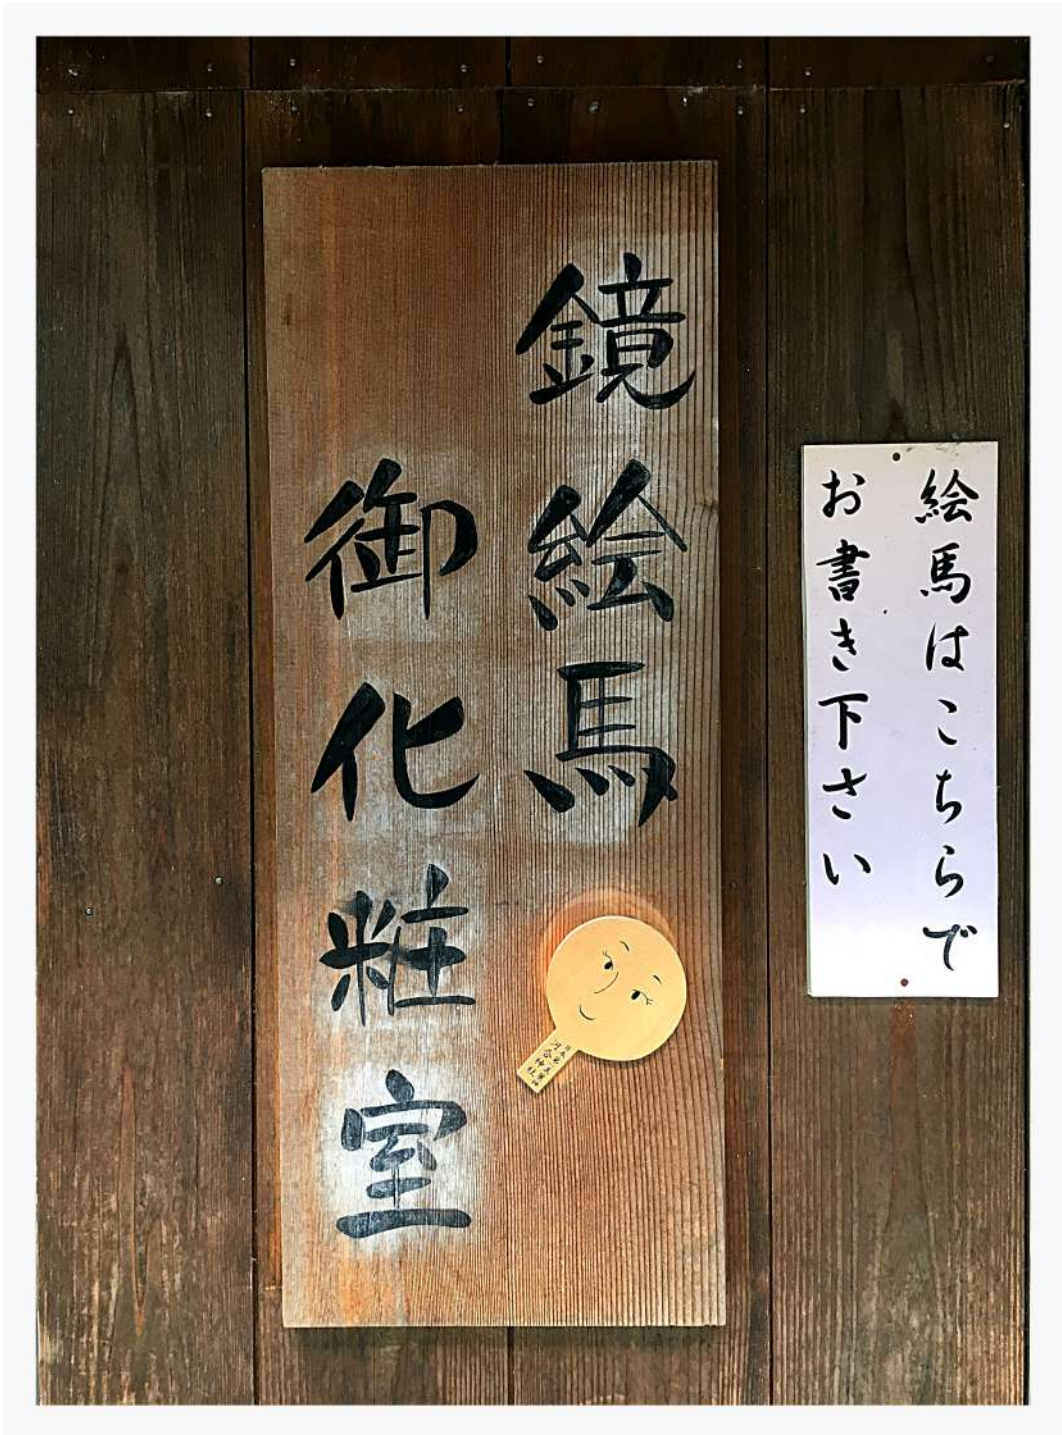 絵馬はこちらで
お書き下さい
鏡絵馬
御化粧室
河合神社